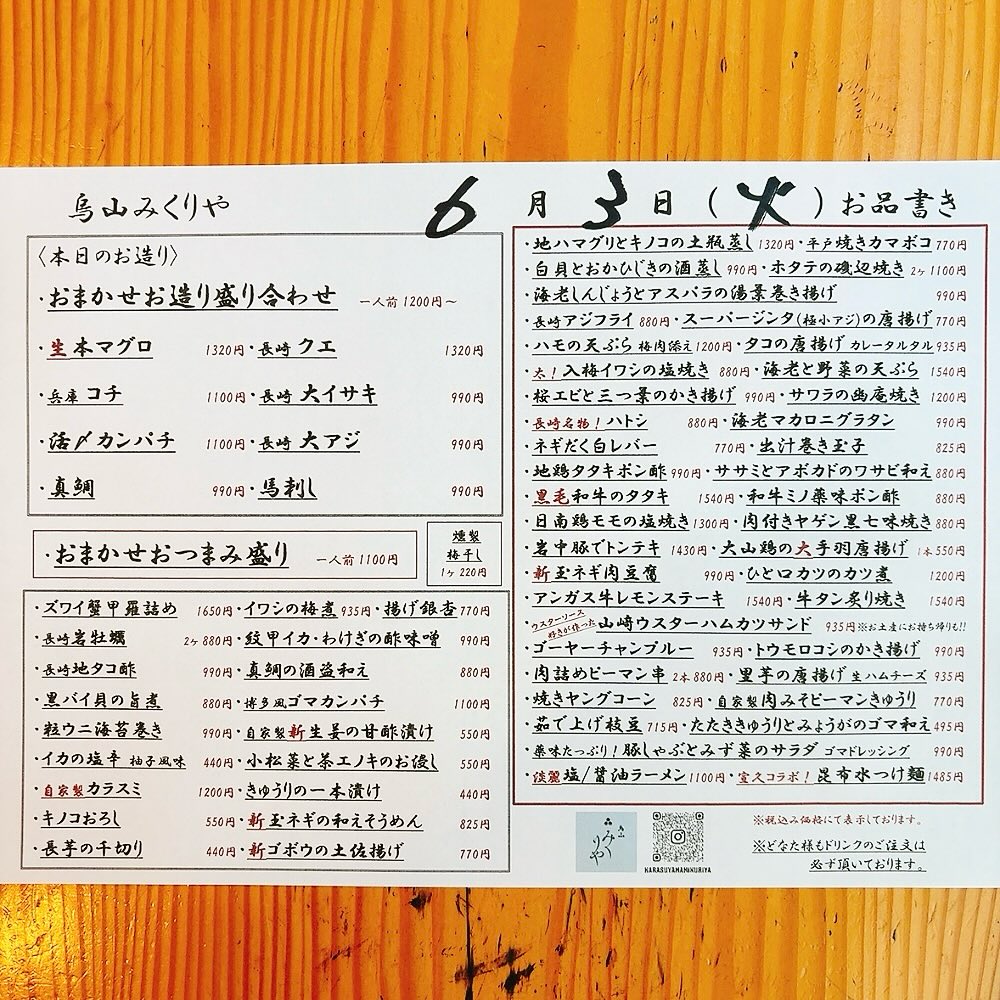 烏山みくりや 6月3日(火)お品書き
〈本日のお造り〉
・おまかせお造り盛り合わせ 一人前1200円～
・生本マグロ 1320円・長崎クエ 1320円
・兵庫コチ 1100円・長崎大イサキ 990円
・活〆カンパチ 1100円・長崎大アジ 990円
・真鯛 990円・馬刺し 990円
・おまかせおつまみ盛り 一人前1100円
燻製
梅干し
1ヶ220円
・ズワイ蟹甲羅詰め 1650円・イワシの梅煮935円・揚げ銀杏770円
・長崎岩牡蠣 2ヶ880円・紋甲イカ・わけぎの酢味噌 990円
・長崎地タコ酢 990円・真鯛の酒盗和え 880円
・黒バイ貝の旨煮 880円・博多風ゴマカンパチ 1100円
・粒ウニ海苔巻き 990円・自家製新生姜の甘酢漬け 550円
・イカの塩辛 柚子風味 440円・小松菜と茶エノキのお浸し 550円
・自家製カラスミ 1200円・きゅうりの一本漬け 440円
・キノコおろし 550円・新玉ネギの和えそうめん 825円
・長芋の千切り 440円・新ゴボウの土佐揚げ 770円
・地ハマグリとキノコの土瓶蒸し1320円・平戸焼きカマボコ770円
・白貝とおかひじきの酒蒸し 990円・ホタテの磯辺焼き 2ヶ1100円
・海老しんじょうとアスパラの湯葉巻き揚げ 990円
・長崎アジフライ 880円・スーパージンタ(極小アジ)の唐揚げ770円
・ハモの天ぷら 梅肉添え1200円・タコの唐揚げ カレータルタル935円
・太！入梅イワシの塩焼き 880円・海老と野菜の天ぷら 1540円
・桜エビと三つ葉のかき揚げ 990円・サワラの幽庵焼き 1200円
・長崎名物！ハトシ 880円・海老マカロニグラタン 990円
・ネギだく白レバー 770円・出汁巻き玉子 825円
・地鶏タタキポン酢990円・ササミとアボカドのワサビ和え880円
・黒毛和牛のタタキ 1540円・和牛ミノ薬味ポン酢 880円
・日南鶏モモの塩焼き1300円・肉付きヤゲン黒七味焼き880円
・岩中豚でトンテキ 1430円・大山鶏の大手羽唐揚げ 1本550円
・新玉ネギ肉豆腐 990円・ひと口カツのカツ煮 1200円
・アンガス牛レモンステーキ 1540円・牛タン炙り焼き 1540円
・ウスターソース好きが作った 山崎ウスターハムカツサンド 935円※お土産にお持ち帰りも!!
・ゴーヤーチャンプルー 935円・トウモロコシのかき揚げ 990円
・肉詰めピーマン串 2本880円・里芋の唐揚げ 生ハムチーズ 935円
・焼きヤングコーン 825円・自家製肉みそピーマンきゅうり 770円
・茹で上げ枝豆 715円・たたききゅうりとみょうがのゴマ和え495円
・薬味たっぷり！豚しゃぶとみず菜のサラダ ゴマドレッシング 990円
・淡麗塩/醤油ラーメン1100円・宣久コラボ！昆布水つけ麺1485円
烏山
みくりや
KARASUYAMAMIKURIYA
※税込み価格にて表示しております。
※どなた様もドリンクのご注文は
必ず頂いております。